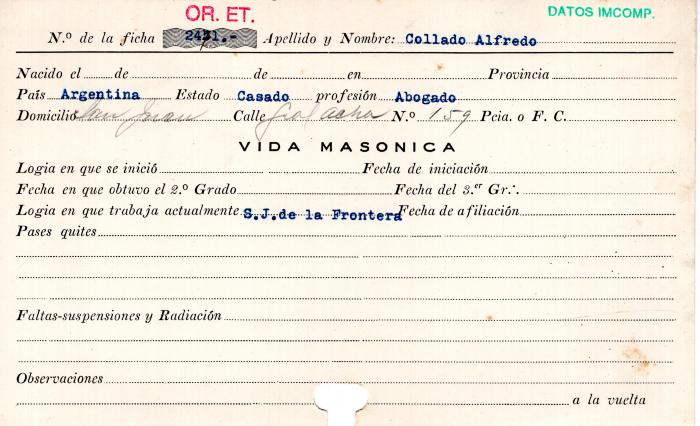 OR. ET.
DATOS IMCOMP.
N.º de la ficha 2421.- Apellido y Nombre: Collado Alfredo
Nacido el de de en Provincia
País Argentina Estado Casado profesión Abogado
Domicilio San Juan Calle Gral Acha N.º 159 Pcia. o F. C.
VIDA MASONICA
Logia en que se inició Fecha de iniciación
Fecha en que obtuvo el 2.º Grado Fecha del 3.er Gr∴
Logia en que trabaja actualmente S.J.de la Frontera Fecha de afiliación
Pases quites
Faltas-suspensiones y Radiación
Observaciones
a la vuelta